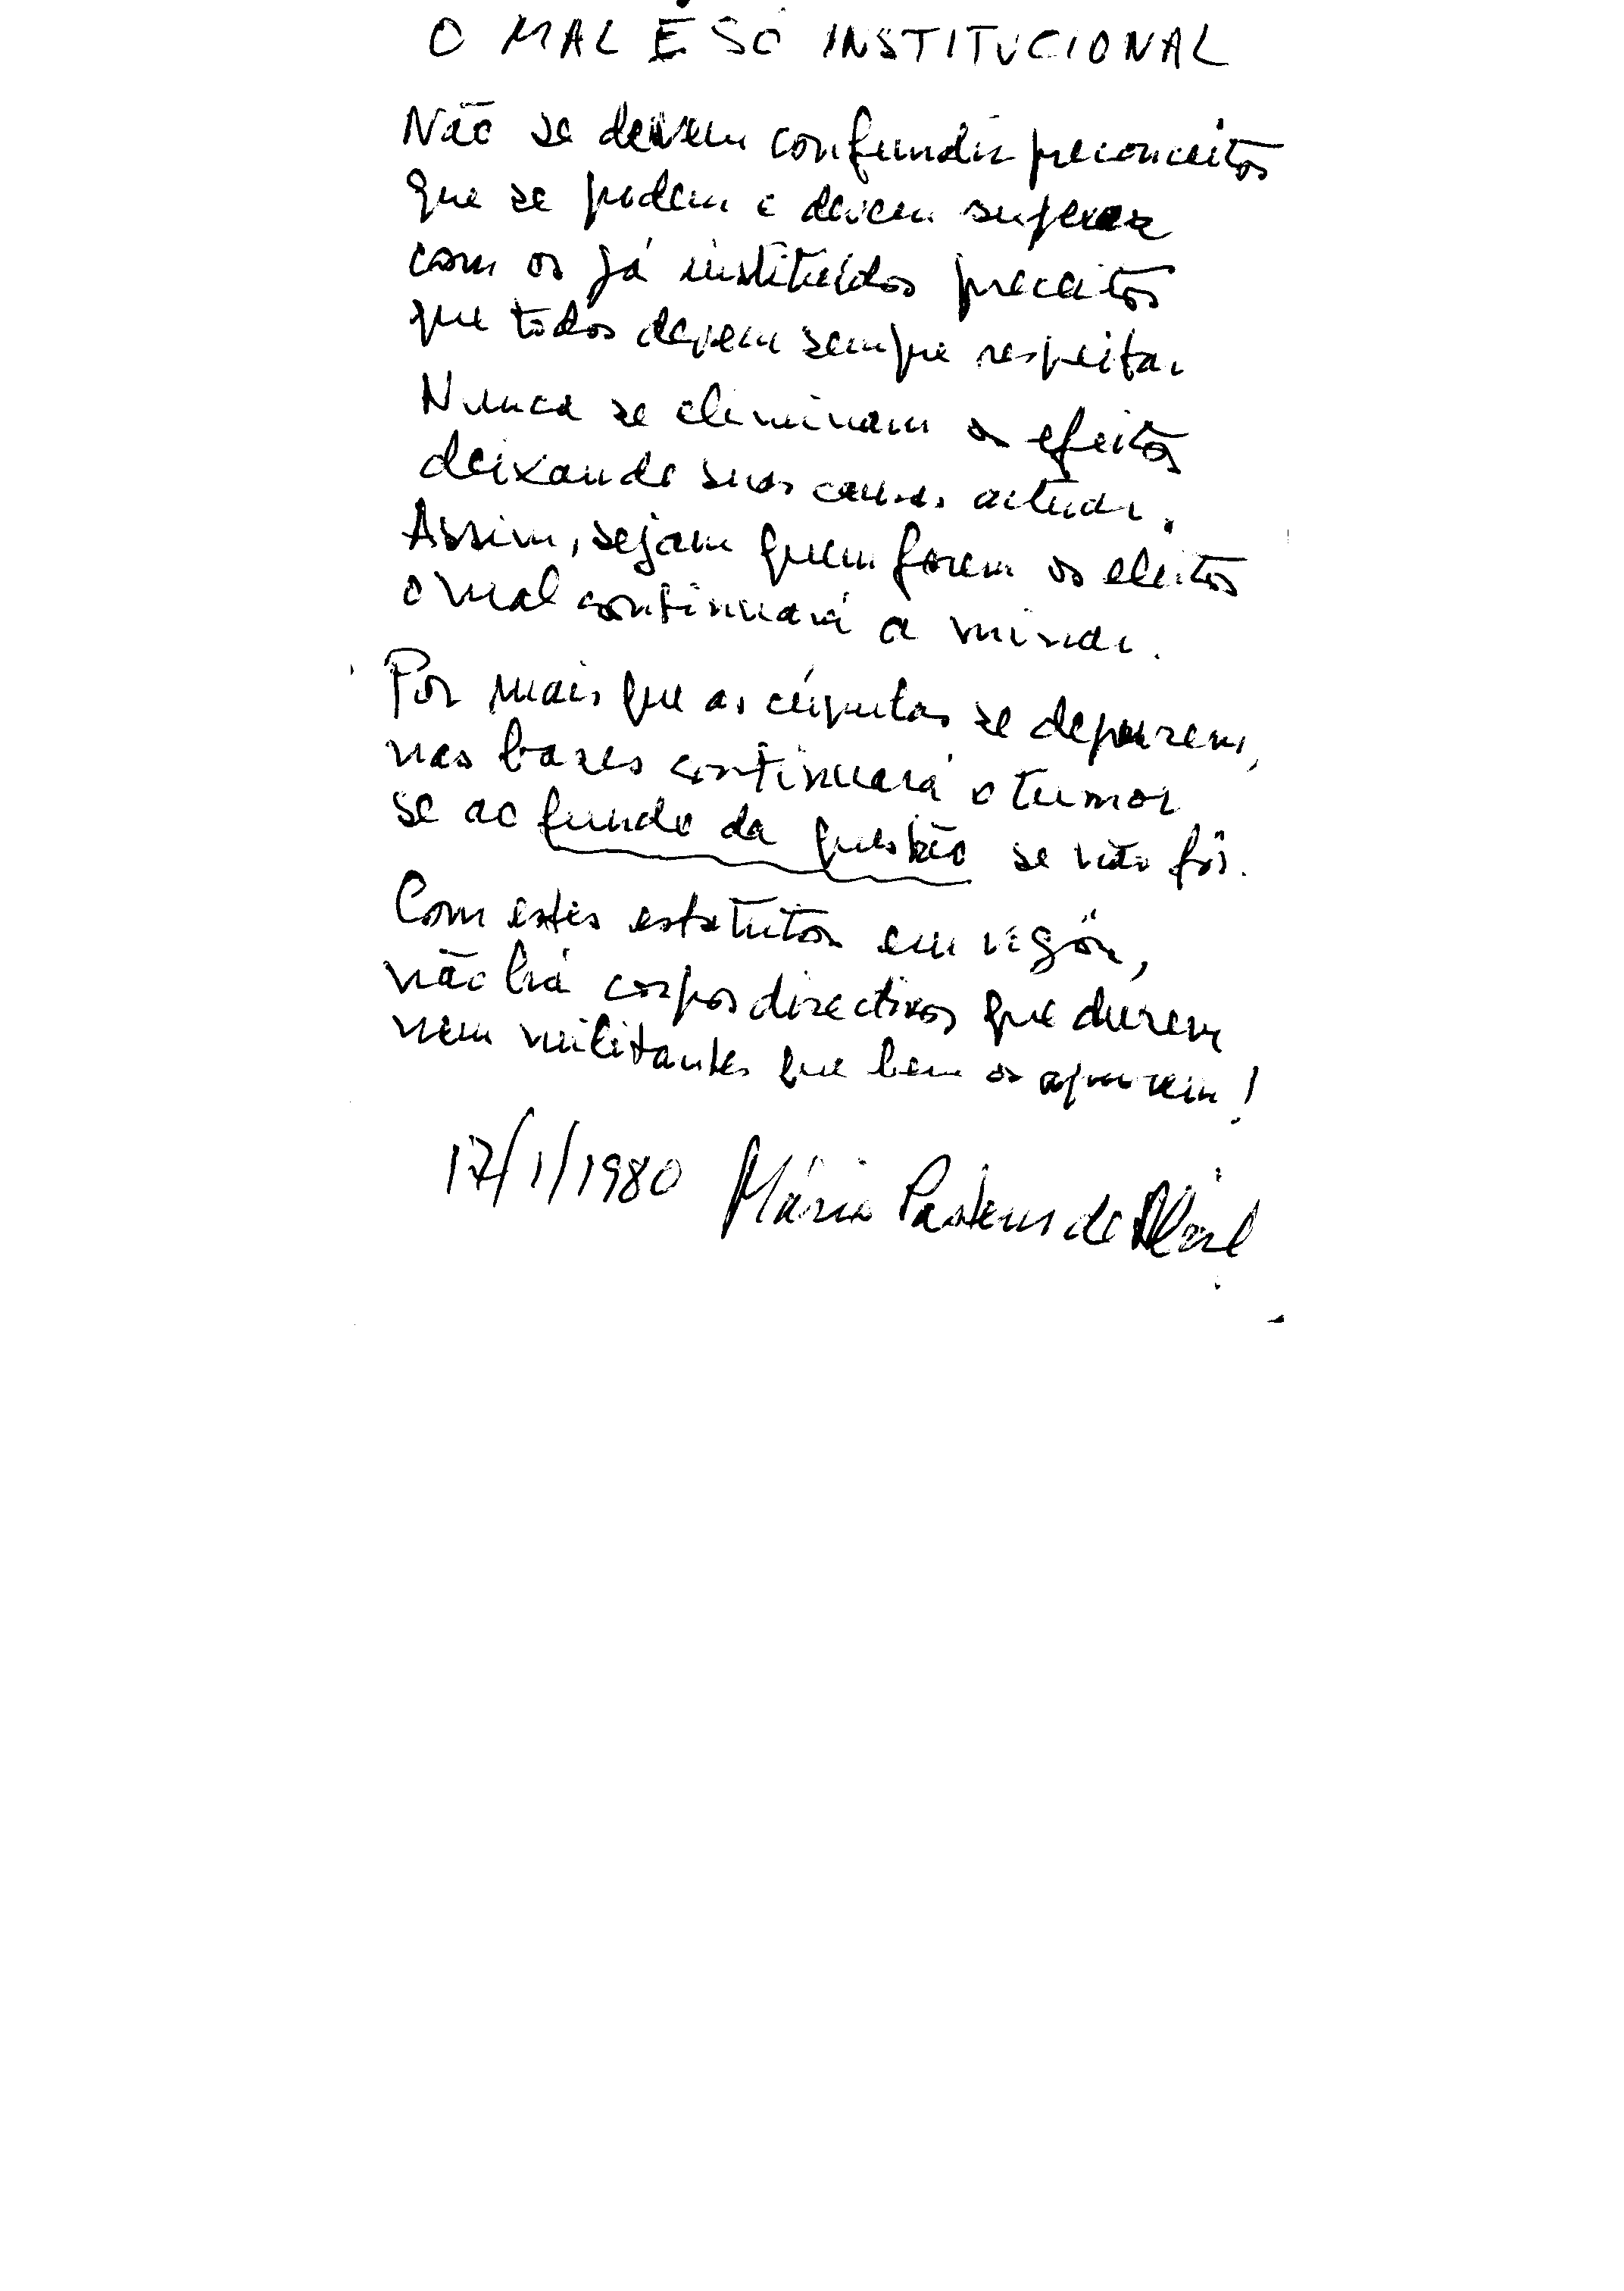 O MAL É SÓ INSTITUCIONAL
Não se devem confundir preconceitos
que se podem e devem superar
com os já instituídos preceitos
que todos devem sempre respeitar
Nunca se eliminam os efeitos
deixando suas causas actuar.
Assim, sejam quem forem os eleitos
o mal continuará a minar.
Por mais que as cúpulas se depurem,
nas bases continuará o tumor
se ao fundo da questão se não fôr.
Com estes estatutos em vigôr,
não há corpos directivos que durem
nem militantes que bem os apurem!
17/1/1980 Mário Pastens de